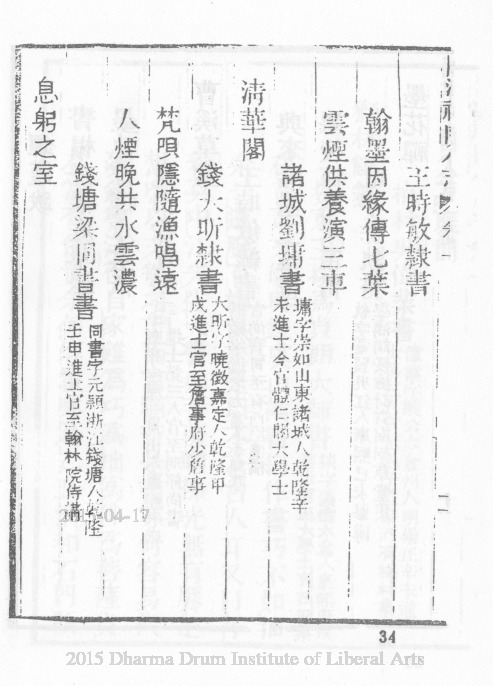 王時敏隸書
翰墨因緣傳七葉
雲煙供養演三車
諸城劉墉書
墉字崇如山東諸城人乾隆辛
未進士今官體仁閣大學士
清華閣
錢大昕隸書
大昕字曉徵嘉定人乾隆甲
戌進士官至詹事府少詹事
梵唄隱隨漁唱遠
人煙晚共水雲濃
錢塘梁同書書
同書字元穎浙江錢塘人乾隆
壬申進士官至翰林院侍講
息躬之室
34
2015-04-17
2015 Dharma Drum Institute of Liberal Arts